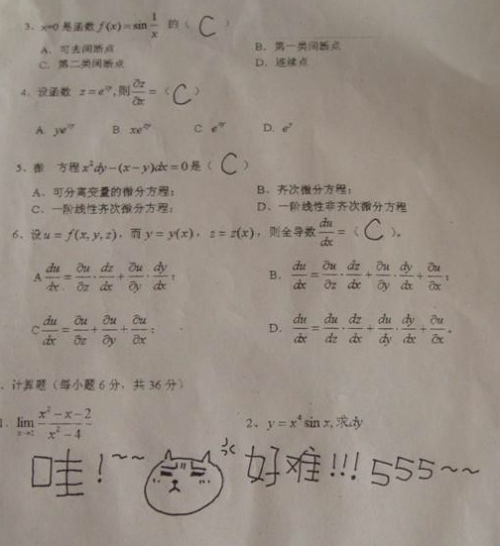 3、x=0是函数f(x)=sin 1/x 的（ C ）
A. 可去间断点 B. 第一类间断点
C. 第二类间断点 D. 连续点
4、设函数 z=e^{xy},则∂z/∂x=（ C ）
A. ye^{xy} B. xe^{xy} C. e^{xy} D. e^y
5、微 方程x²dy-(x-y)dx=0是（ C ）
A、可分离变量的微分方程； B、齐次微分方程；
C、一阶线性齐次微分方程； D、一阶线性非齐次微分方程
6、设u=f(x,y,z)，而y=y(x)，z=z(x)，则全导数du/dx=（ C ）。
A. du/dx=∂u/∂z·dz/dx+∂u/∂y·dy/dx； B. du/dx=∂u/∂z·dz/dx+∂u/∂y·dy/dx+∂u/∂x；
C. du/dx=∂u/∂z+∂u/∂y+∂u/∂x； D. du/dx=du/dz·dz/dx+du/dy·dy/dx+∂u/∂x。
、计算题（每小题6分，共36分）
1. lim x²-x-2/x²-4 2、y=x⁴sin x,求dy
哇！~~ 好难!!! 555~~